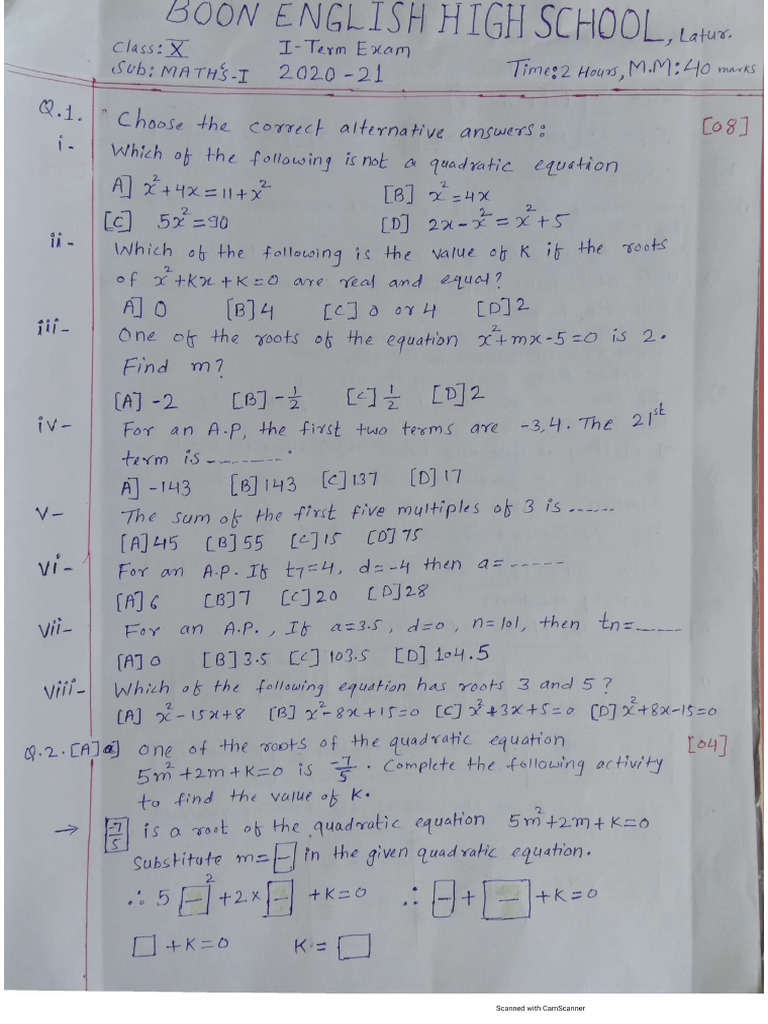 BOON ENGLISH HIGH SCHOOL, Latur.
Class: X I-Term Exam
Sub: MATH'S-I 2020-21 Time: 2 Hours, M.M: 40 marks
Q.1. Choose the correct alternative answers: [08]
i- Which of the following is not a quadratic equation
A] x²+4x=11+x² [B] x²=4x
[C] 5x²=90 [D] 2x-x²=x²+5
ii- Which of the following is the value of K if the roots
of x²+Kx+K=0 are real and equal?
A] 0 [B] 4 [C] 0 or 4 [D] 2
iii- One of the roots of the equation x²+mx-5=0 is 2.
Find m?
[A] -2 [B] -1/2 [C] 1/2 [D] 2
iv- For an A.P, the first two terms are -3,4. The 21st
term is --------.
A] -143 [B] 143 [C] 137 [D] 17
v- The sum of the first five multiples of 3 is ------
[A] 45 [B] 55 [C] 15 [D] 75
vi- For an A.P. If t7=4, d=-4 then a=-----
[A] 6 [B] 7 [C] 20 [D] 28
vii- For an A.P., If a=3.5, d=0, n=101, then tn=____
[A] 0 [B] 3.5 [C] 103.5 [D] 104.5
viii- Which of the following equation has roots 3 and 5?
[A] x²-15x+8 [B] x²-8x+15=0 [C] x²+3x+5=0 [D] x²+8x-15=0
Q.2. [A] a] One of the roots of the quadratic equation [04]
5m²+2m+K=0 is -7/5. Complete the following activity
to find the value of K.
→ -7/5 is a root of the quadratic equation 5m²+2m+K=0
Substitute m= □ in the given quadratic equation.
∴ 5 □² +2× □ +K=0 ∴ □ + □ +K=0
□ +K=0 K= □
Scanned with CamScanner